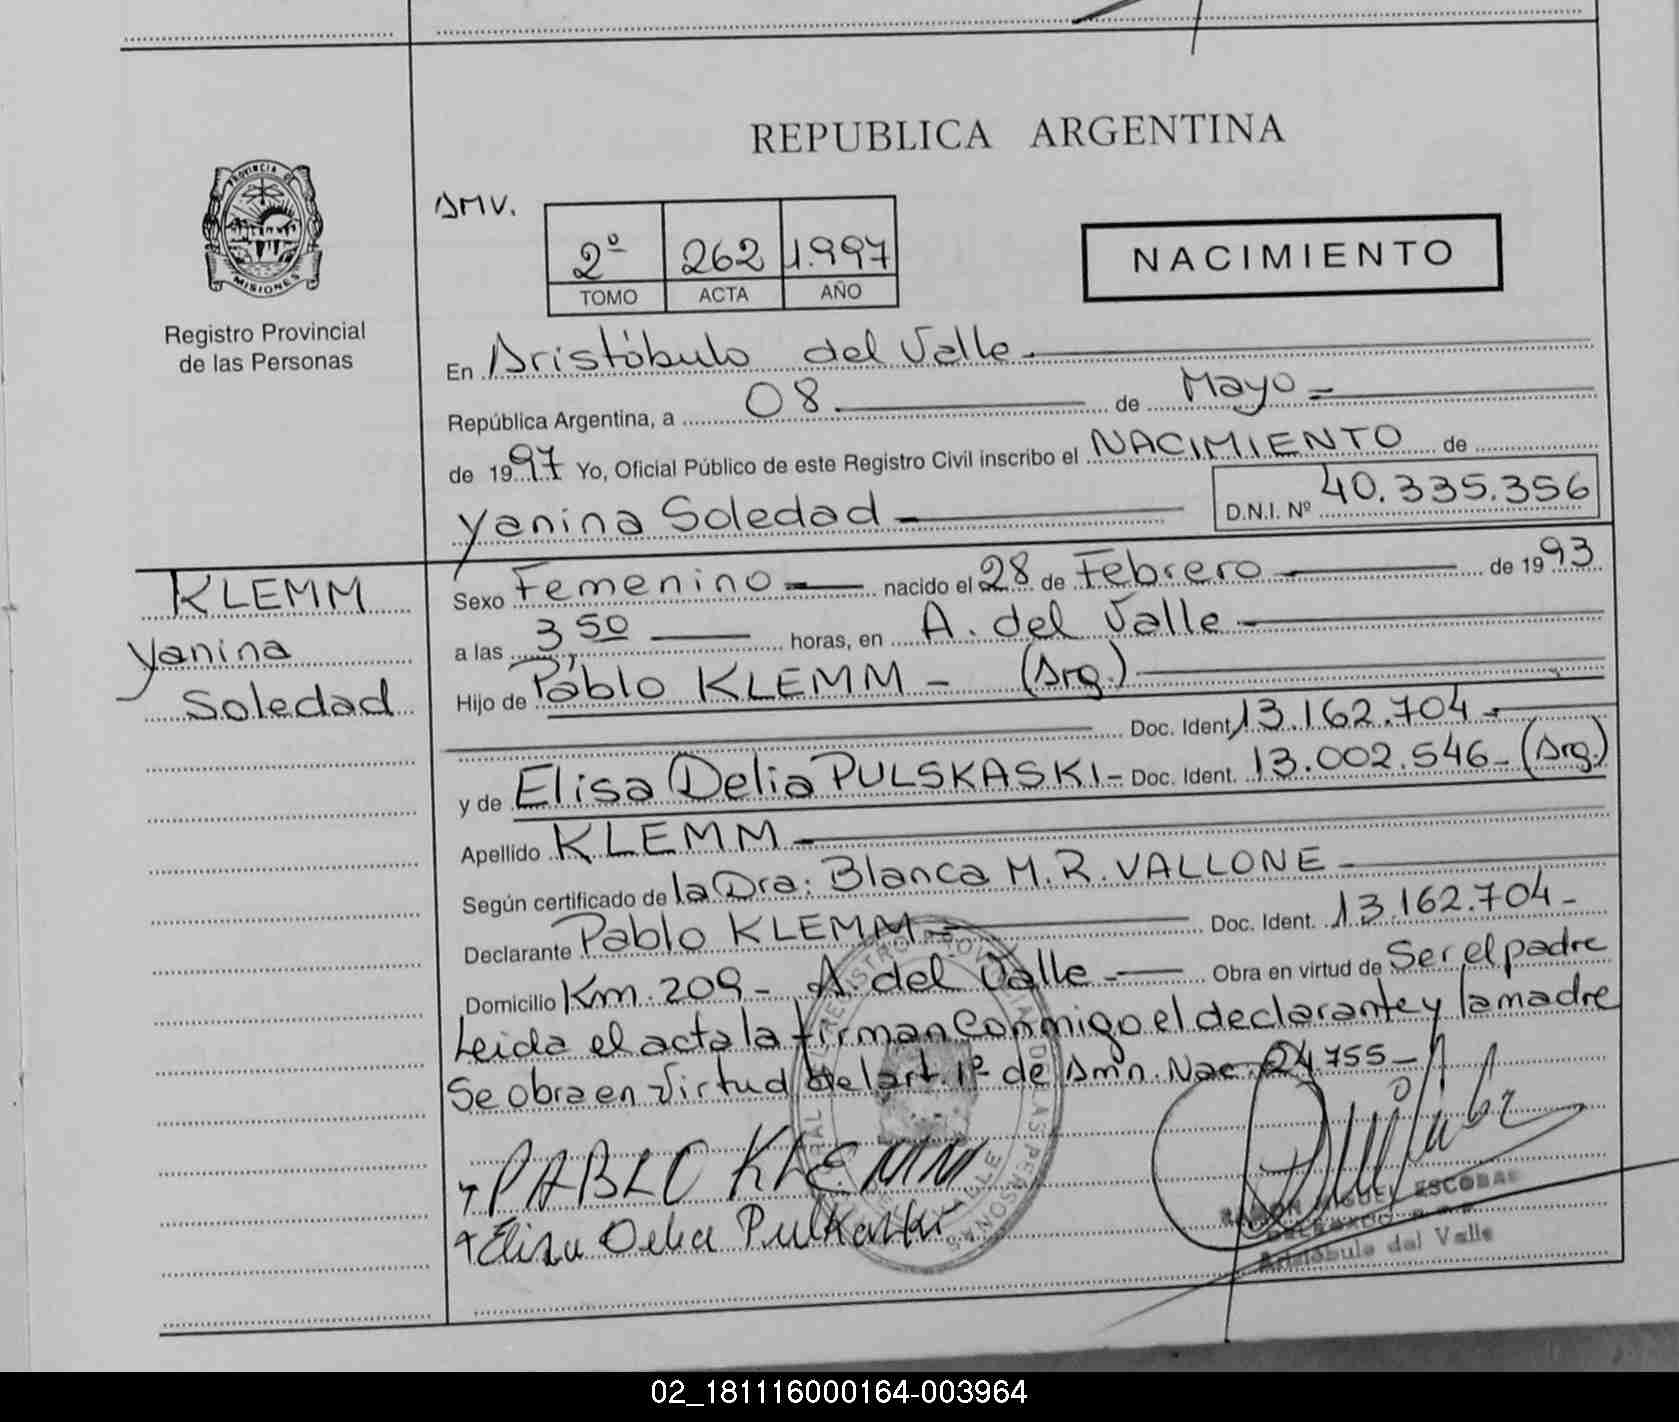 REPUBLICA ARGENTINA
PROVINCIA DE MISIONES
Registro Provincial
de las Personas
AMV.
2º 262 1.997
TOMO ACTA AÑO
NACIMIENTO
En Aristóbulo del Valle
República Argentina, a 08 de Mayo
de 1997 Yo, Oficial Público de este Registro Civil inscribo el NACIMIENTO de
Yanina Soledad D.N.I. Nº 40.335.356
KLEMM
Yanina
Soledad
Sexo Femenino nacido el 28 de Febrero de 1993
a las 3,50 horas, en A. del Valle
Hijo de Pablo KLEMM - (Arg.)
Doc. Ident. 13.162.704
y de Elisa Delia PULSKASKI - Doc. Ident. 13.002.546 - (Arg.)
Apellido KLEMM
Según certificado de la Dra: Blanca M.R. VALLONE
Declarante Pablo KLEMM Doc. Ident. 13.162.704 -
Domicilio Km. 209 - A. del Valle Obra en virtud de Ser el padre
Leida el acta la firman conmigo el declarante y la madre
Se obra en virtud del art. 1º de Amn. Nac. 24.755 -
PABLO KLEMM
Elisa Delia Pulkaski
RAMON MIGUEL ESCOBAR
Aristóbulo del Valle
02_181116000164-003964